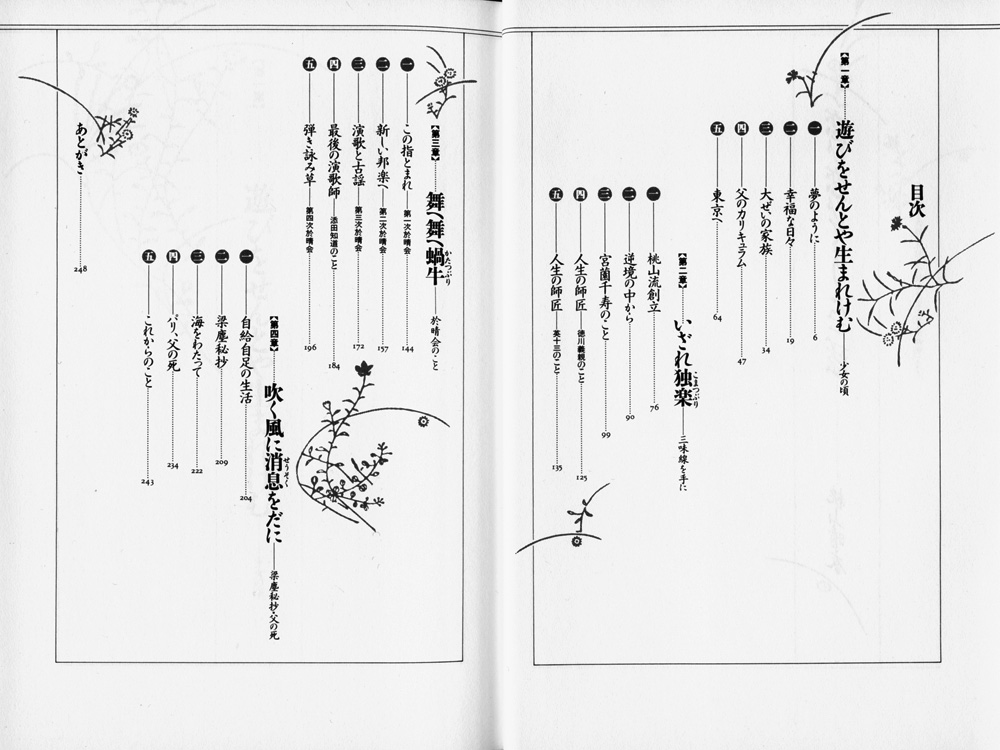 目次
【第一章】 遊びをせんとや生まれけむ 少女の頃
一 夢のように 6
二 幸福な日々 19
三 大ぜいの家族 34
四 父のカリキュラム 47
五 東京へ 64
【第二章】 いざれ独楽 こまつぶり 三味線を手に
一 桃山流創立 76
二 逆境の中から 90
三 宮薗千寿のこと 99
四 人生の師匠 徳川義親のこと 125
五 人生の師匠 英十三のこと 135
【第三章】 舞へ舞へ蝸牛 かたつぶり 於晴会のこと
一 この指とまれ 第一次於晴会 144
二 新しい邦楽へ 第二次於晴会 157
三 演歌と古謡 第三次於晴会 172
四 最後の演歌師 添田知道のこと 184
五 弾き詠み草 第四次於晴会 196
【第四章】 吹く風に消息をだに せうそく 梁塵秘抄・父の死
一 自給自足の生活 204
二 梁塵秘抄 209
三 海をわたって 222
四 パリ、父の死 234
五 これからのこと 243
あとがき 248